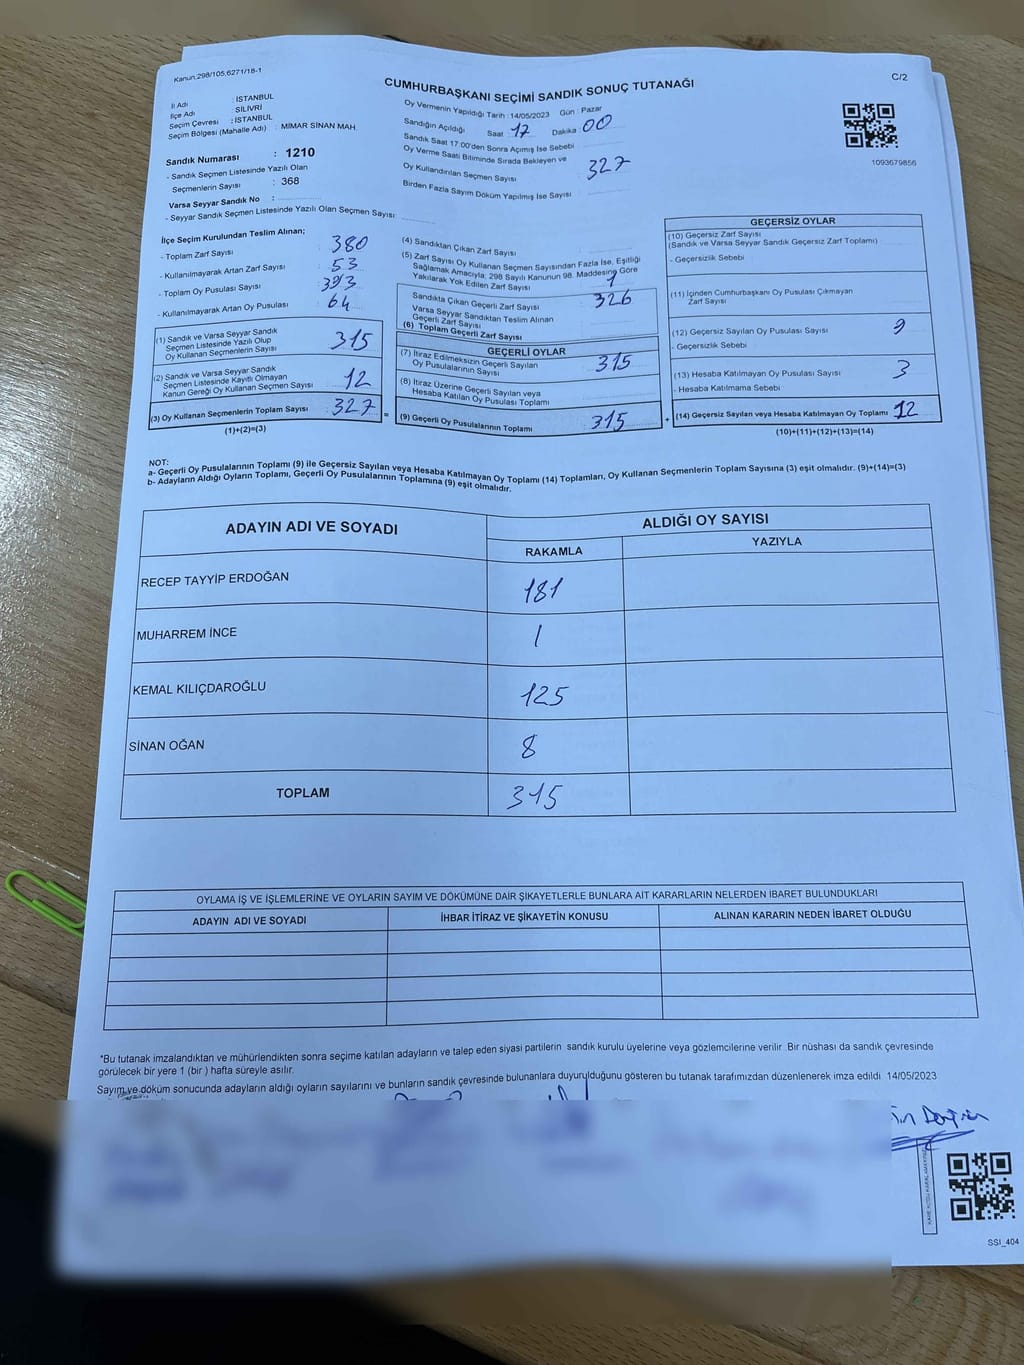 Kanun,298/105,6271/18-1
C/2
CUMHURBAŞKANI SEÇİMİ SANDIK SONUÇ TUTANAĞI
İl Adı : İSTANBUL
İlçe Adı : SİLİVRİ
Seçim Çevresi : İSTANBUL
Seçim Bölgesi (Mahalle Adı) : MİMAR SİNAN MAH.
Sandık Numarası : 1210
- Sandık Seçmen Listesinde Yazılı Olan
Seçmenlerin Sayısı : 368
Varsa Seyyar Sandık No :
- Seyyar Sandık Seçmen Listesinde Yazılı Olan Seçmen Sayısı:
Oy Vermenin Yapıldığı Tarih : 14/05/2023 Gün : Pazar
Sandığın Açıldığı Saat 17 Dakika 00
Sandık Saat 17:00'den Sonra Açımış İse Sebebi :
Oy Verme Saati Bitiminde Sırada Bekleyen ve
Oy Kullandırılan Seçmen Sayısı : 327
Birden Fazla Sayım Döküm Yapılmış İse Sayısı :
1093679856
İlçe Seçim Kurulundan Teslim Alınan;
- Toplam Zarf Sayısı : 380
- Kullanılmayarak Artan Zarf Sayısı : 53
- Toplam Oy Pusulası Sayısı : 393
- Kullanılmayarak Artan Oy Pusulası : 64
(1) Sandık ve Varsa Seyyar Sandık
Seçmen Listesinde Yazılı Olup
Oy Kullanan Seçmenlerin Sayısı : 315
(2) Sandık ve Varsa Seyyar Sandık
Seçmen Listesinde Kayıtlı Olmayan
Kanun Gereği Oy Kullanan Seçmen Sayısı : 12
(3) Oy Kullanan Seçmenlerin Toplam Sayısı : 327
(1)+(2)=(3)
=
(4) Sandıktan Çıkan Zarf Sayısı :
(5) Zarf Sayısı Oy Kullanan Seçmen Sayısından Fazla İse, Eşitliği
Sağlamak Amacıyla; 298 Sayılı Kanunun 98. Maddesine Göre
Yakılarak Yok Edilen Zarf Sayısı : 1
Sandıkta Çıkan Geçerli Zarf Sayısı : 326
Varsa Seyyar Sandıktan Teslim Alınan
Geçerli Zarf Sayısı :
(6) Toplam Geçerli Zarf Sayısı
GEÇERLİ OYLAR
(7) İtiraz Edilmeksizin Geçerli Sayılan
Oy Pusulalarının Sayısı : 315
(8) İtiraz Üzerine Geçerli Sayılan veya
Hesaba Katılan Oy Pusulası Toplamı :
(9) Geçerli Oy Pusulalarının Toplamı : 315
+
GEÇERSİZ OYLAR
(10) Geçersiz Zarf Sayısı
(Sandık ve Varsa Seyyar Sandık Geçersiz Zarf Toplamı) :
- Geçersizlik Sebebi :
(11) İçinden Cumhurbaşkanı Oy Pusulası Çıkmayan
Zarf Sayısı :
(12) Geçersiz Sayılan Oy Pusulası Sayısı : 9
- Geçersizlik Sebebi :
(13) Hesaba Katılmayan Oy Pusulası Sayısı : 3
- Hesaba Katılmama Sebebi :
(14) Geçersiz Sayılan veya Hesaba Katılmayan Oy Toplamı : 12
(10)+(11)+(12)+(13)=(14)
NOT:
a- Geçerli Oy Pusulalarının Toplamı (9) ile Geçersiz Sayılan veya Hesaba Katılmayan Oy Toplamı (14) Toplamları, Oy Kullanan Seçmenlerin Toplam Sayısına (3) eşit olmalıdır. (9)+(14)=(3)
b- Adayların Aldığı Oyların Toplamı, Geçerli Oy Pusulalarının Toplamına (9) eşit olmalıdır.
ADAYIN ADI VE SOYADI
ALDIĞI OY SAYISI
RAKAMLA YAZIYLA
RECEP TAYYİP ERDOĞAN 181
MUHARREM İNCE 1
KEMAL KILIÇDAROĞLU 125
SİNAN OĞAN 8
TOPLAM 315
OYLAMA İŞ VE İŞLEMLERİNE VE OYLARIN SAYIM VE DÖKÜMÜNE DAİR ŞİKAYETLERLE BUNLARA AİT KARARLARIN NELERDEN İBARET BULUNDUKLARI
ADAYIN ADI VE SOYADI İHBAR İTİRAZ VE ŞİKAYETİN KONUSU ALINAN KARARIN NEDEN İBARET OLDUĞU
*Bu tutanak imzalandıktan ve mühürlendikten sonra seçime katılan adayların ve talep eden siyasi partilerin sandık kurulu üyelerine veya gözlemcilerine verilir. Bir nüshası da sandık çevresinde
görülecek bir yere 1 (bir ) hafta süreyle asılır.
Sayım ve döküm sonucunda adayların aldığı oyların sayılarını ve bunların sandık çevresinde bulunanlara duyurulduğunu gösteren bu tutanak tarafımızdan düzenlenerek imza edildi. 14/05/2023
SSI_404